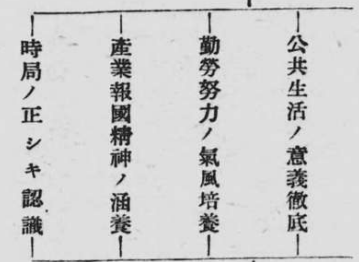 公共生活ノ意義徹底
勤勞努力ノ氣風培養
產業報國精神ノ涵養
時局ノ正シキ認識